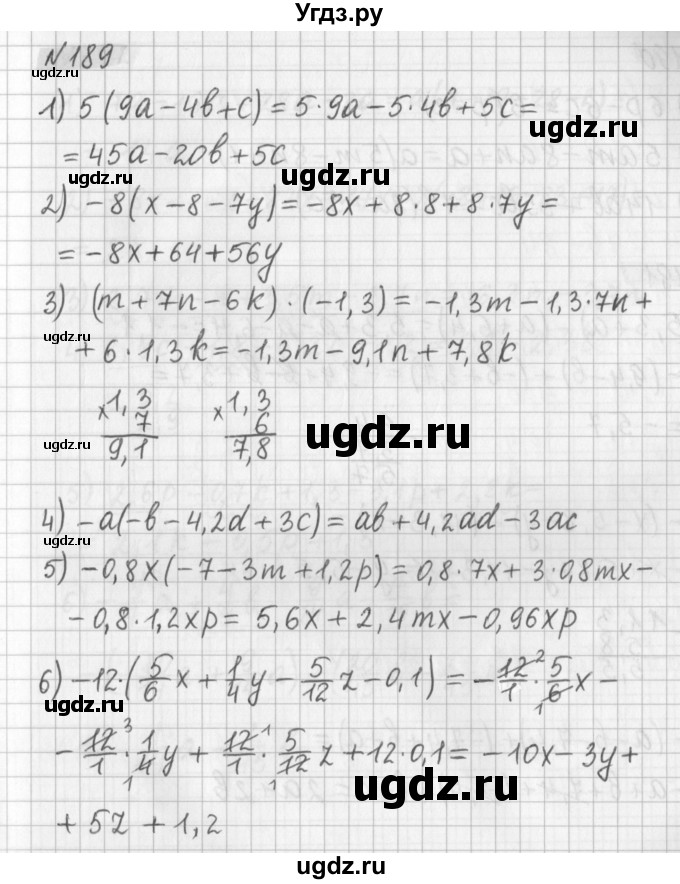 Угдз.ру
№189
ugdz.ru
1) 5(9a-4b+c)=5·9a-5·4b+5c=
ugdz.ru
=45a-20b+5c
ugdz.ru
ugdz.ru
2) -8(x-8-7y)=-8x+8·8+8·7y=
=-8x+64+56y
3) (m+7n-6k)·(-1,3)=-1,3m-1,3·7n+
ugdz.ru
+6·1,3k=-1,3m-9,1n+7,8k
×1,3 ×1,3
7 6
ugdz.ru
9,1 7,8
ugdz.ru
4) -a(-b-4,2d+3c)=ab+4,2ad-3ac
ugdz.ru
5) -0,8x(-7-3m+1,2p)=0,8·7x+3·0,8mx-
-0,8·1,2xp=5,6x+2,4mx-0,96xp
6) -12·(5/6x+1/4y-5/12z-0,1)=-12/1·5/6x-
ugdz.ru
-12/1·1/4y+12/1·5/12z+12·0,1=-10x-3y+
ugdz.ru
+5z+1,2
ugdz.ru